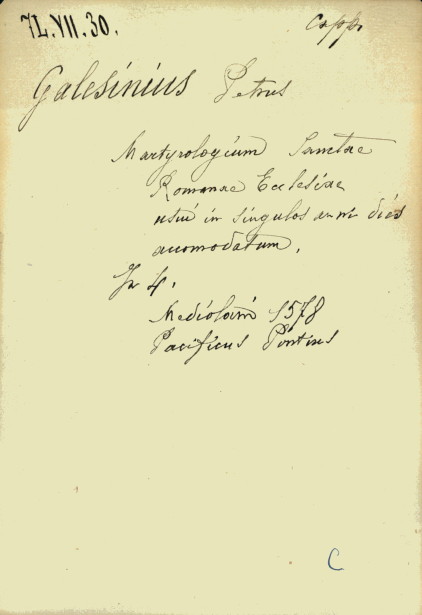 7L.VII.30.
Capp.
Galesinius Petrus
Martyrologium Sanctae
Romanae Ecclesiae
usui in singulos anni dies
acomodatum.
In 4.
Mediolani 1578
Pacificus Pontius
C